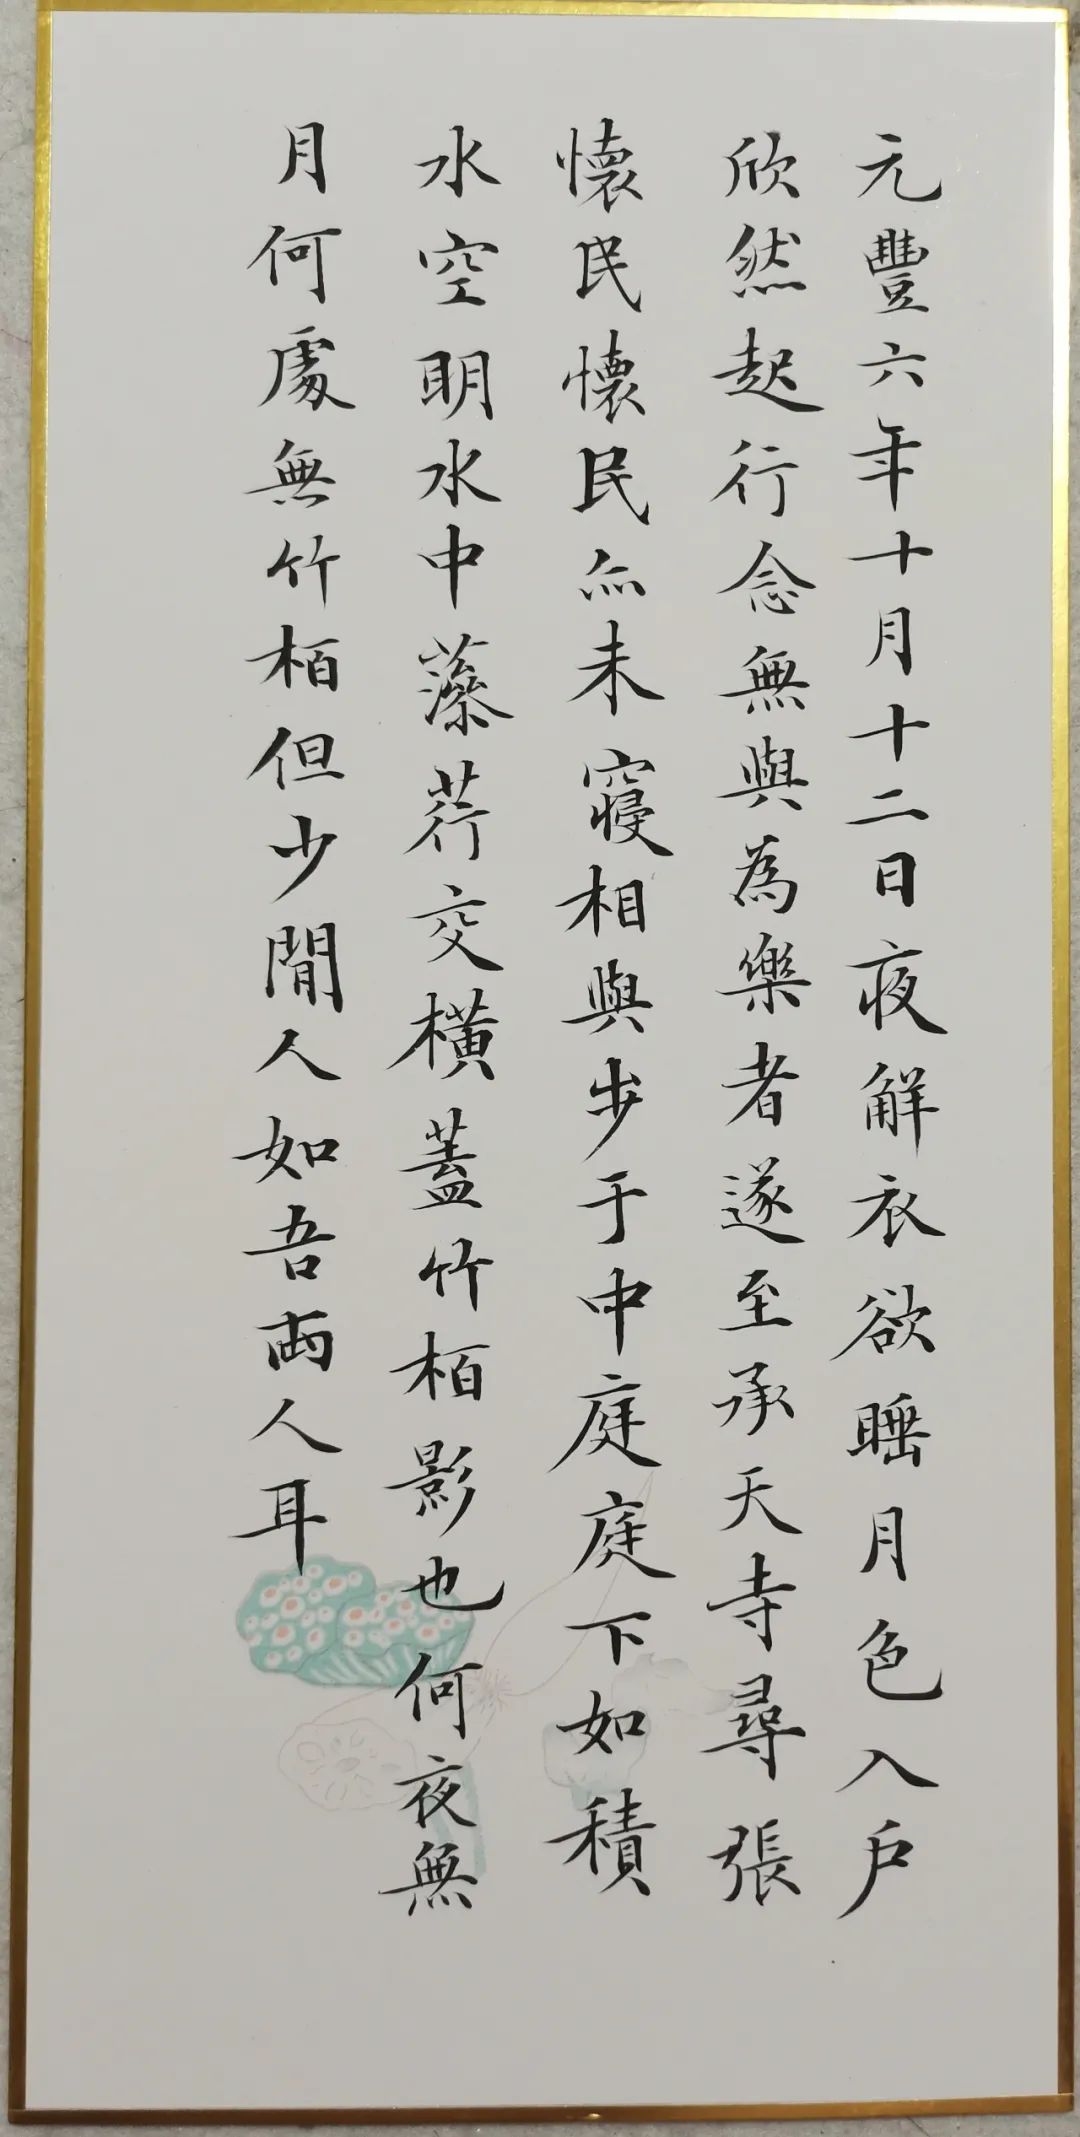 元豐六年十月十二日夜解衣欲睡月色入戶
欣然起行念無與為樂者遂至承天寺尋張
懷民懷民亦未寢相與步于中庭庭下如積
水空明水中藻荇交橫蓋竹栢影也何夜無
月何處無竹栢但少閒人如吾兩人耳